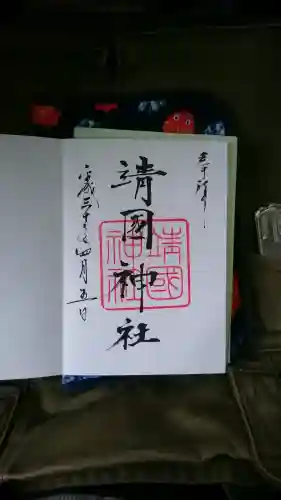 奉拝
靖国神社
平成三十年四月五日
靖國
神社